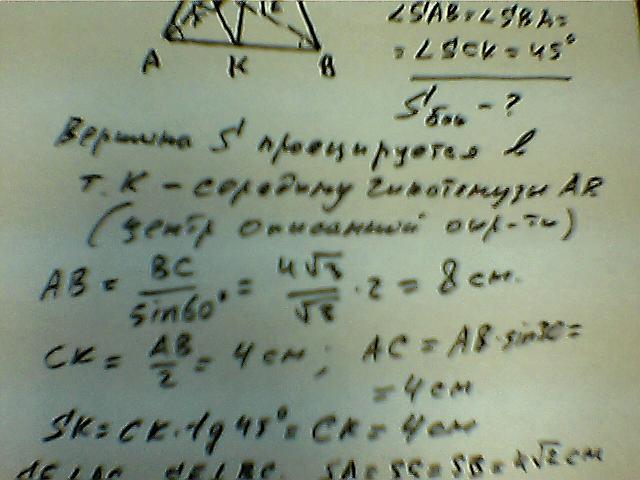 ∠SAB = ∠SBA =
= ∠SCK = 45°
A K B
Sбок - ?
Вершина S проецируется в
т. K - середину гипотенузы AB
(центр описанной окр-ти)
AB = BC/sin60° = 4√3/√3 · 2 = 8 см.
CK = AB/2 = 4 см; AC = AB·sin30 =
= 4 см
SK = CK·tg 45° = CK = 4 см
SA = SC = SB = 4√2 см